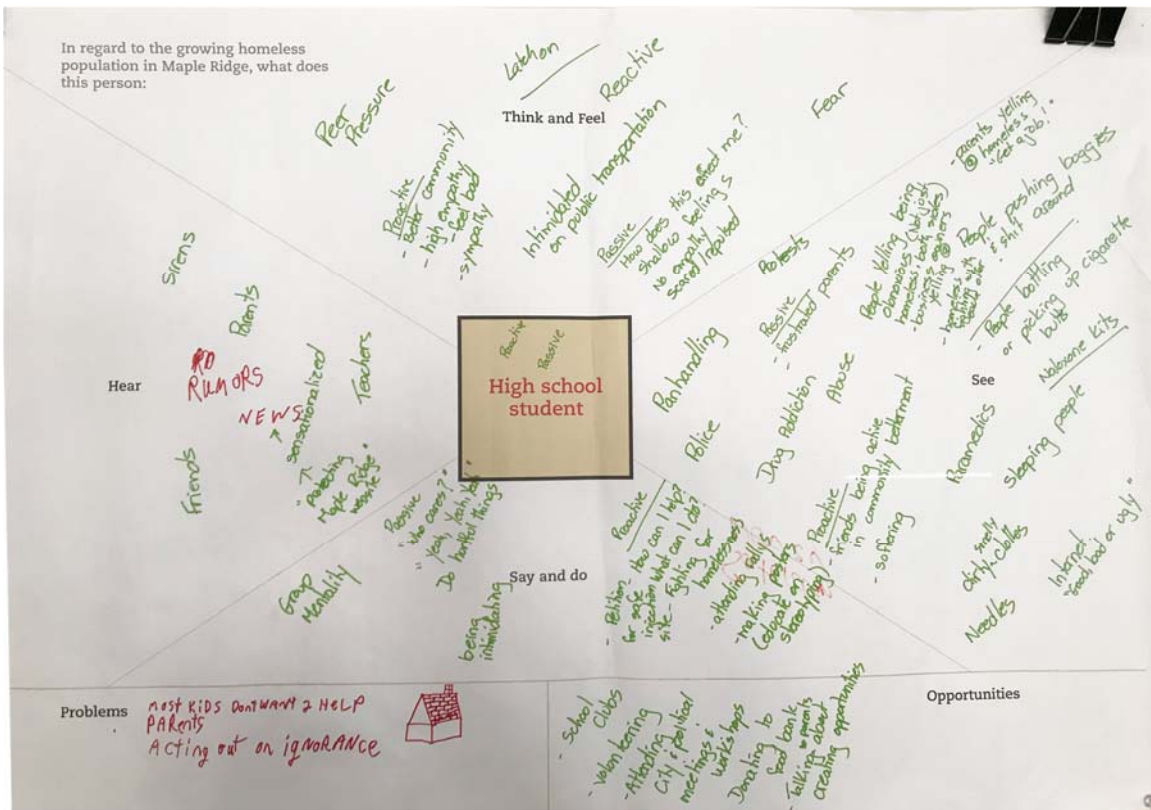 In regard to the growing homeless
population in Maple Ridge, what does
this person:
Think and Feel
Peer
Pressure
Latch on
Reactive
Fear
Proactive
- Better community
- high empathy
- feel bad
- sympathy
Intimidated
on public transportation
Passive
How does this affect me?
Shallow feelings
No empathy
scared/repulsed
Hear
Sirens
Parents
RUMORS
NEWS
sensationalized
Teachers
Friends
Maple Ridge
website"
High school
student
Proactive
Passive
See
Protests
Passive
- frustrated parents
Panhandling
Police
Drug Addiction
Abuse
- parents yelling
@ homeless
"Get a job!"
People yelling being
(Not just
homeless, both sides)
- business owners
yelling @
homeless
People pushing baggies
& shit around
- People bottling
or picking up cigarette
butts
Naloxone kits
Paramedics
Sleeping people
smelly
dirty clothes
Needles
Internet
"Good, bad or ugly"
Proactive
- friends being active
in community betterment
- suffering
Say and do
Passive
"who cares?"
"Yeah, Yeah, Yeah"
Do hurtful things
Group
Mentality
being
intimidating
Proactive
- Petition
for safe
injection
site
- How can I help?
What can I do?
- Fighting for
homelessness?
- attending rallys
- making posters
(educate on
stereotyping)
Problems
MOST KIDS DONT WANT 2 HELP
PARENTS
ACTING OUT ON IGNORANCE
Opportunities
- School
clubs
- Volunteering
- Attending
City & political
meetings &
workshops
Donating to
food bank
- Talking to parents
about
creating opportunities